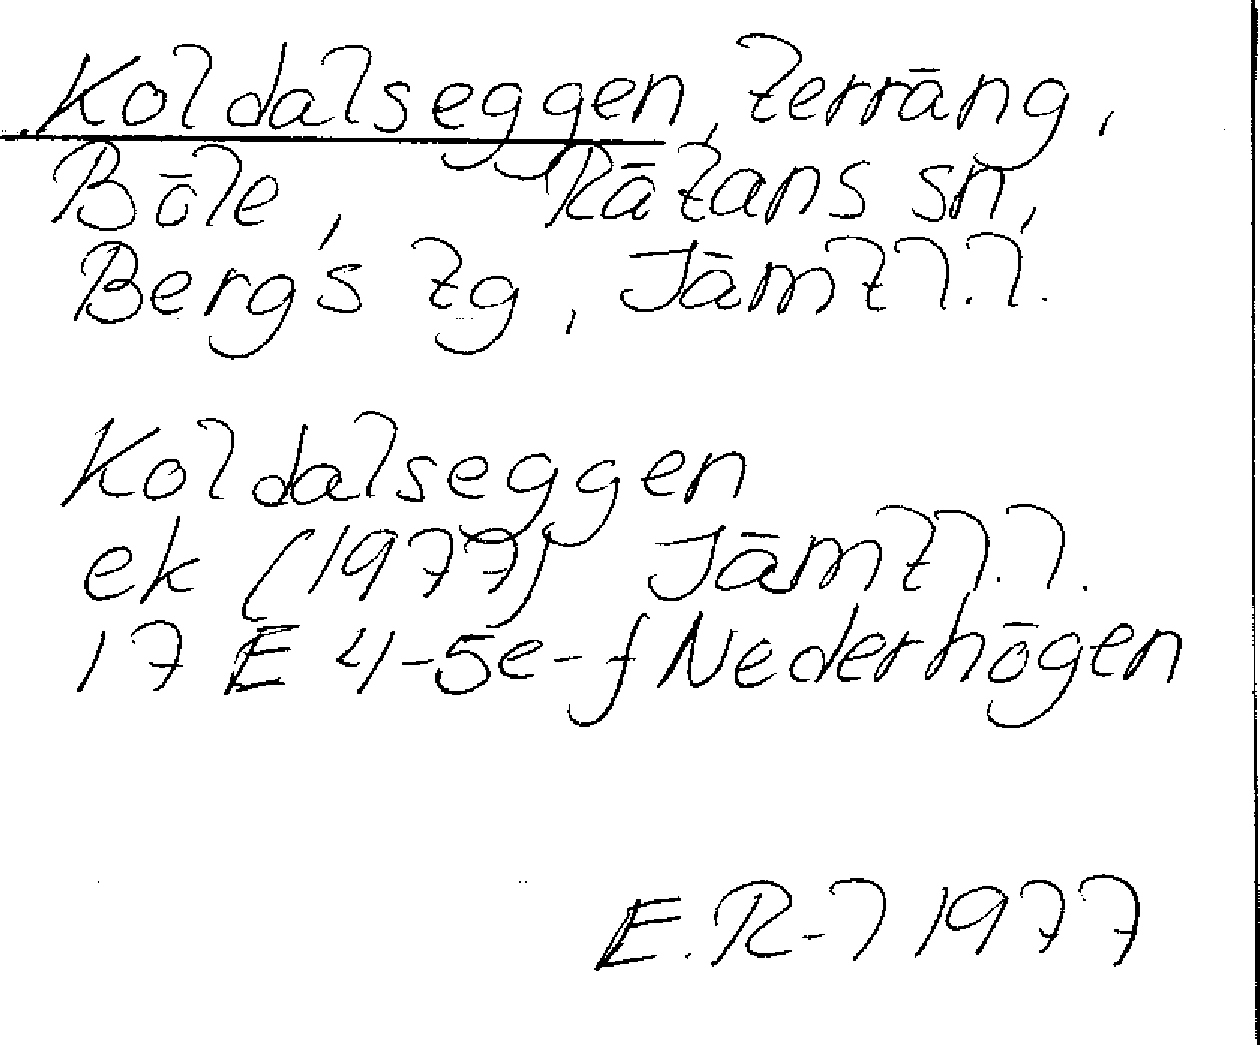 Koldalseggen, terräng,
Böle, Rätans sn,
Bergs tg, Jämtl.l.
Koldalseggen
ek (1977) Jämtl.l.
17 E 4-5e-f Nederhögen
E.R-l 1977